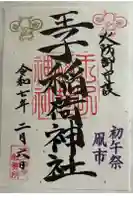 火防御守護
初午祭
凧市
王子稲荷神社
令和七年二月六日